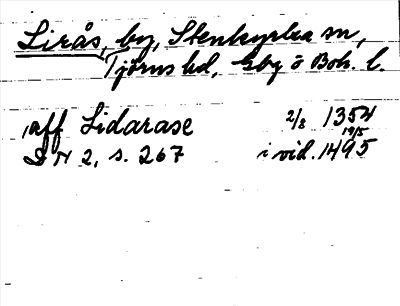 Lirås, by, Stenkyrka sn,
Tjörns hd, Gbg o Boh. l.
aff Lidarase 2/8 1354
DN 2, s. 267 i vid. 19/5 1495